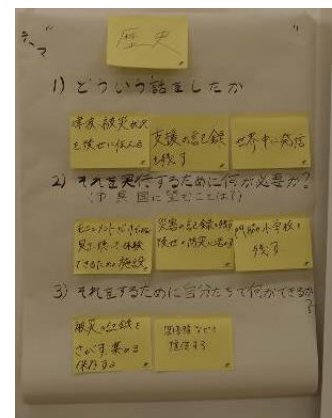 テーマ " 歴史 "
1) どういう話をしたか
被災状況
を後世に伝える
支援の記録
を残す
世界中に発信
2) それを実行するために何が必要か?
(市 県 国に望むことは!)
モニュメントだけでなく
見て、聞いて、体験
できるための施設
災害の記録を残し
後世の防災に
門脇小学校を
残す
3) それをするために自分たちで何ができるか?
被災の記録を
さがす、集める
保存する
などで